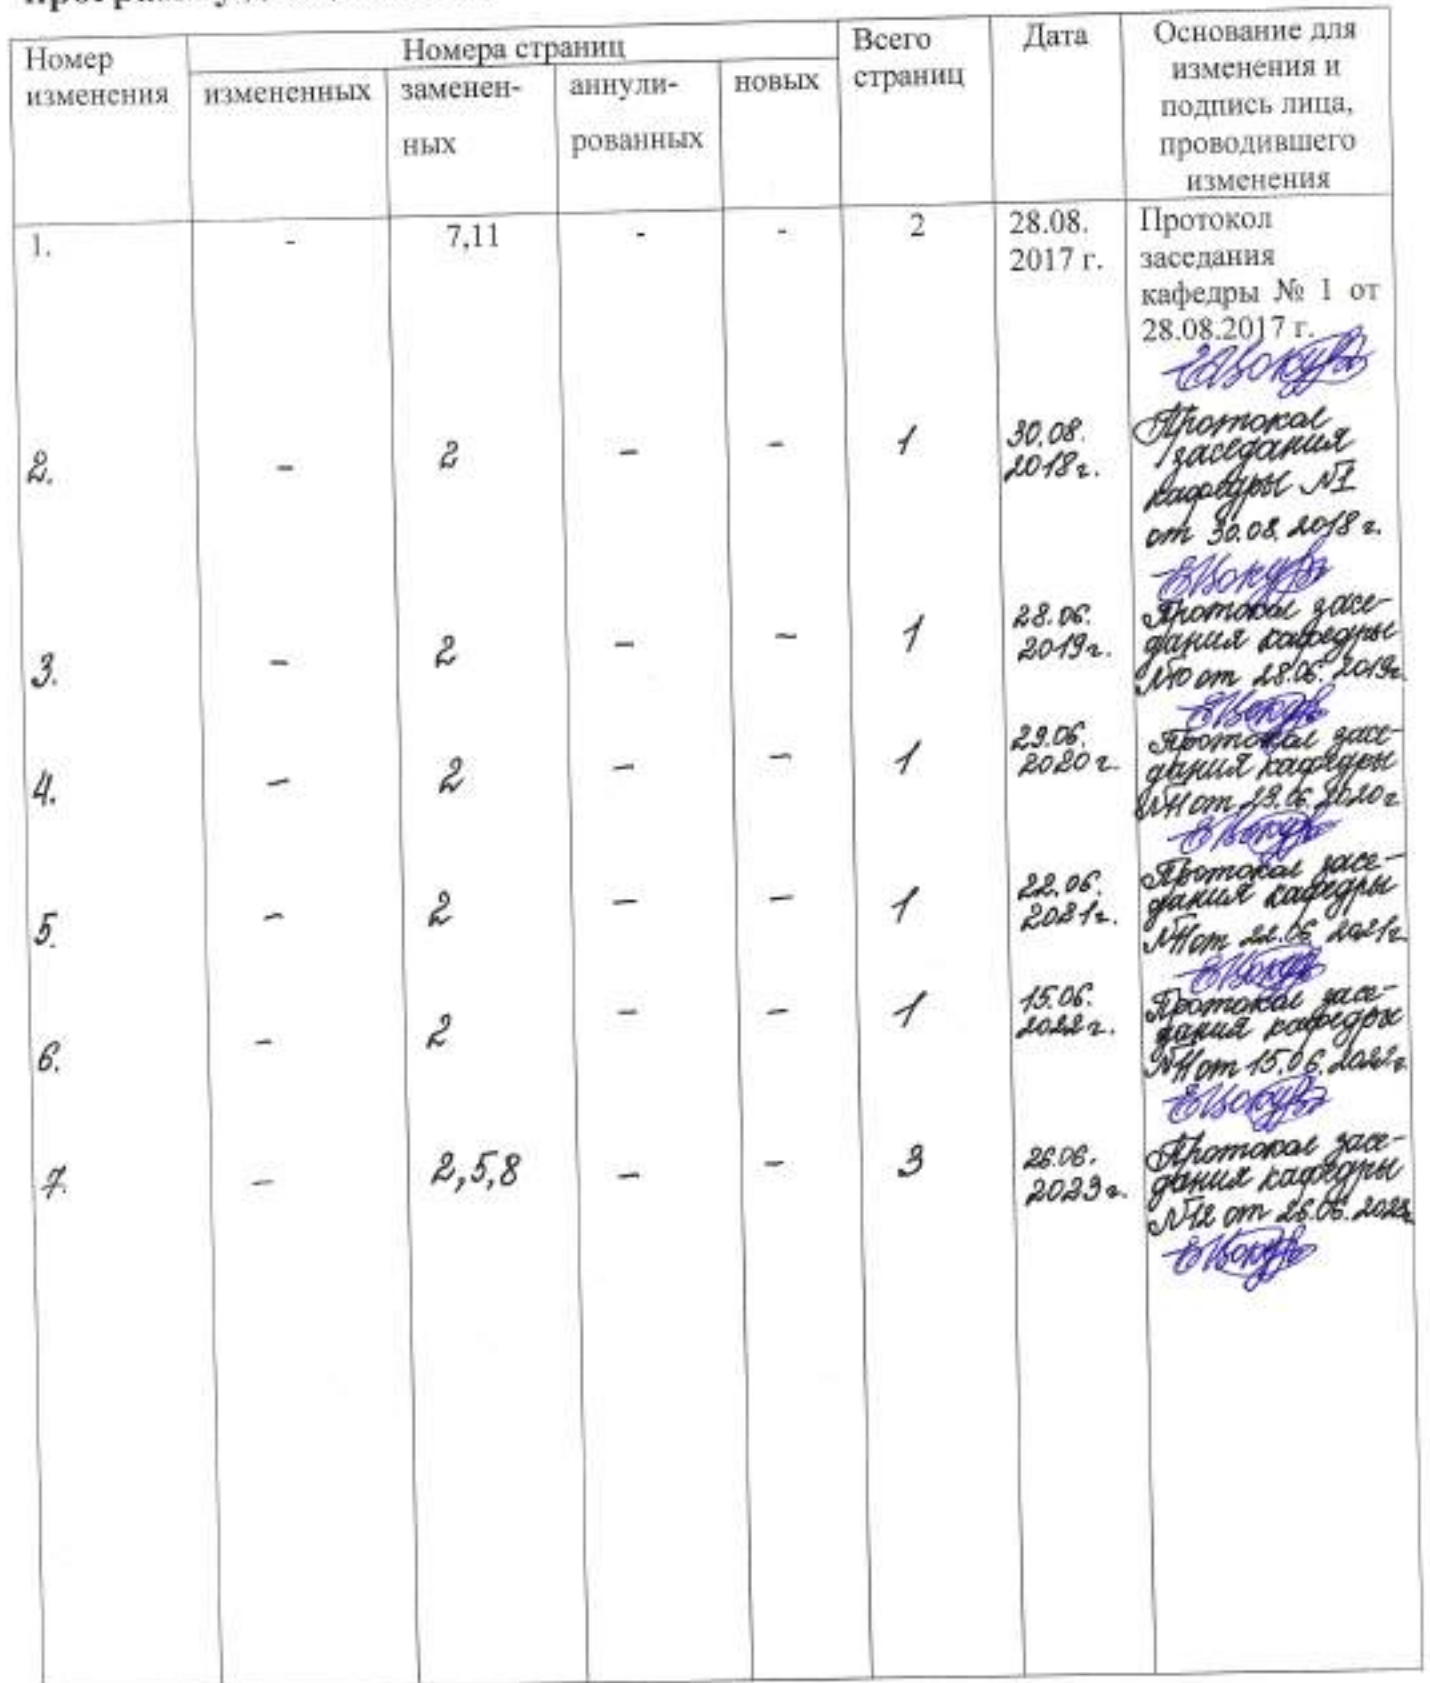 Номер
изменения
Номера страниц
измененных
заменен-
ных
аннули-
рованных
новых
Всего
страниц
Дата
Основание для
изменения и
подпись лица,
проводившего
изменения
1. - 7,11 - - 2
28.08.
2017 г.
Протокол
заседания
кафедры № 1 от
28.08.2017 г.
2. - 2 - - 1
30.08.
2018 г.
Протокол
заседания
кафедры №1
от 30.08.2018 г.
3. - 2 - - 1
28.06.
2019 г.
Протокол засе-
дания кафедры
№10 от 28.06.2019г.
4. - 2 - - 1
29.06.
2020 г.
Протокол засе-
дания кафедры
№11 от 29.06.2020 г.
5. - 2 - - 1
22.06.
2021г.
Протокол засе-
дания кафедры
№11 от 22.06.2021г.
6. - 2 - - 1
15.06.
2022 г.
Протокол засе-
дания кафедры
№11 от 15.06.2022г.
7. - 2,5,8 - - 3
26.06.
2023 г.
Протокол засе-
дания кафедры
№12 от 26.06.2023г.